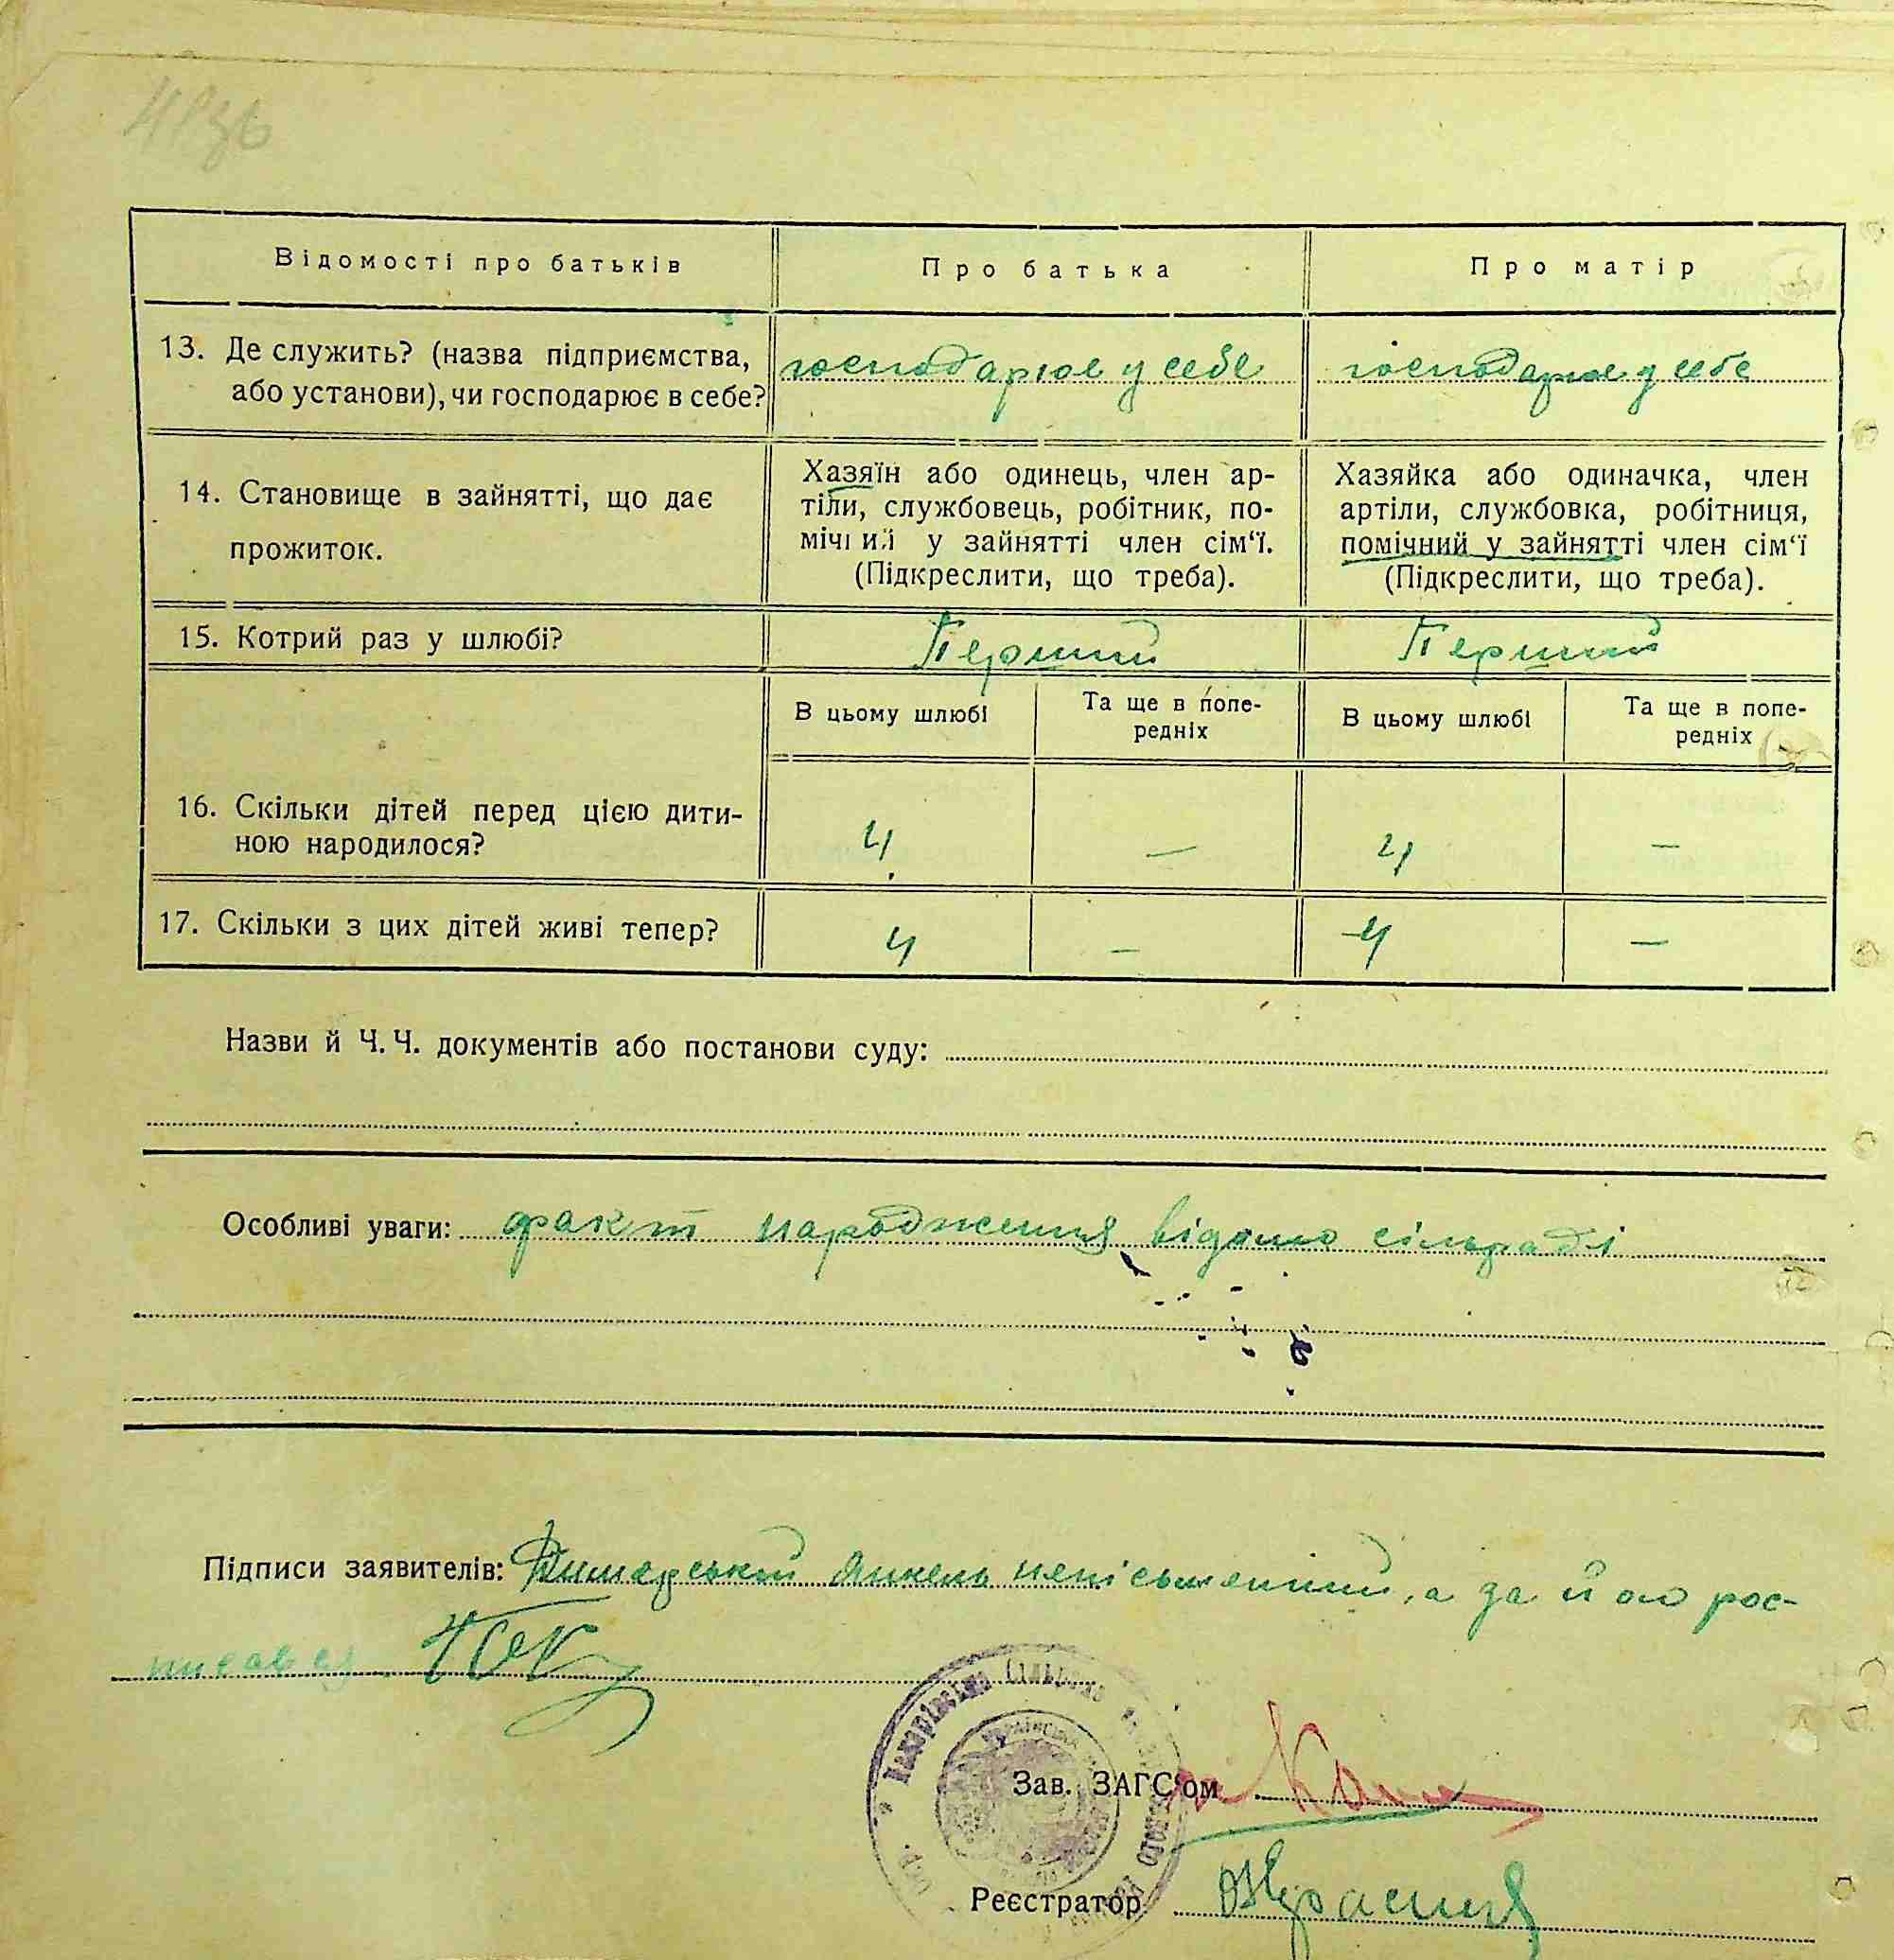 Відомості про батьків
Про батька
Про матір
13. Де служить? (назва підприємства,
або установи), чи господарює в себе?
господарює у себе
господарює у себе
14. Становище в зайнятті, що дає
прожиток.
Хазяїн або одинець, член ар-
тіли, службовець, робітник, по-
мічний у зайнятті член сім‘ї.
(Підкреслити, що треба).
Хазяйка або одиначка, член
артіли, службовка, робітниця,
помічний у зайнятті член сім‘ї
(Підкреслити, що треба).
15. Котрий раз у шлюбі?
Перший
Перший
В цьому шлюбі
Та ще в попе-
редніх
В цьому шлюбі
Та ще в попе-
редніх
16. Скільки дітей перед цією дити-
ною народилося?
4
—
4
—
17. Скільки з цих дітей живі тепер?
4
—
4
—
Назви й Ч. Ч. документів або постанови суду:
Особливі уваги: факт народження відомо сільраді
Підписи заявителів: непісьменний, а за його рос-
писавсь
Зав. ЗАГС‘ом
Реєстратор